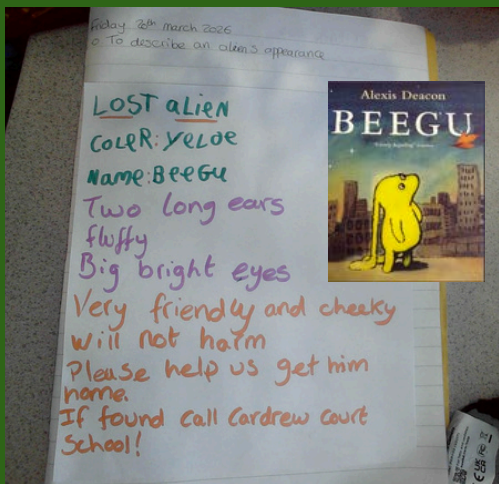 Friday 20th march 2026
o To describe an alien's appearance
LOST aLieN
COLeR: YeLOe
Name: BeeGU
Two long ears
fluffy
Big bright eyes
Very friendly and cheeky
will not harm
Please help us get him
home.
If found call Cardrew Court
School!
Alexis Deacon
BEEGU